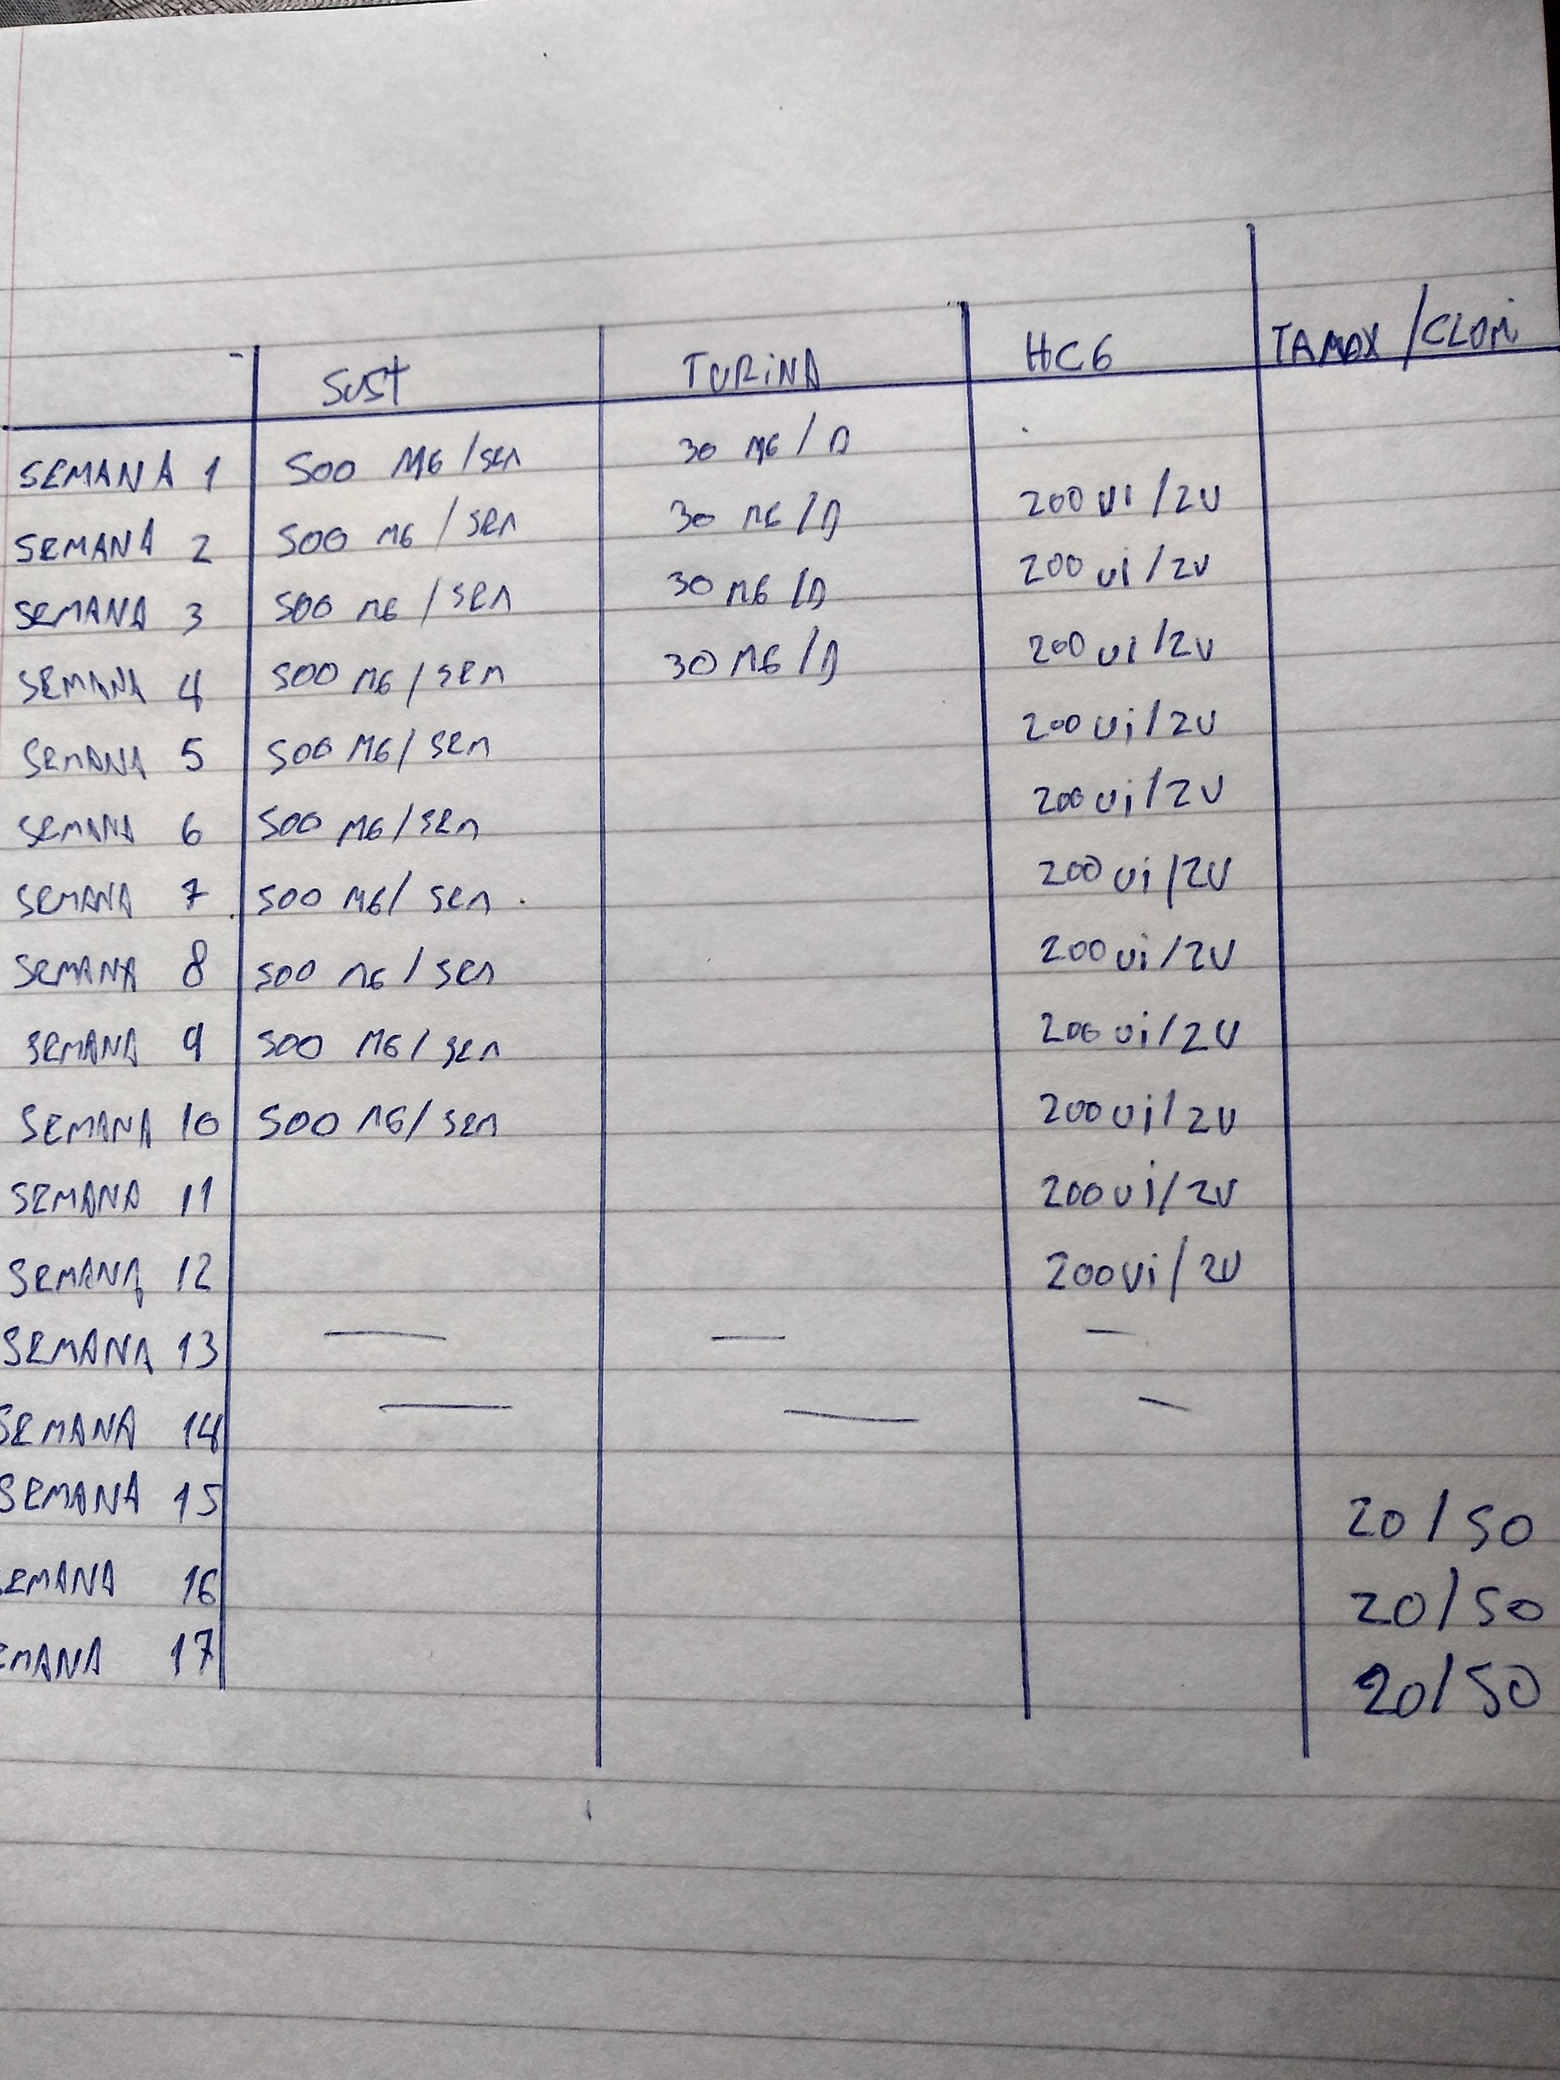 SUST TURINA HCG TAMOX / CLOMI
SEMANA 1 500 MG / SEM 30 MG / D
SEMANA 2 500 MG / SEM 30 MG / D 200 UI / 2V
SEMANA 3 500 MG / SEM 30 MG / D 200 UI / 2V
SEMANA 4 500 MG / SEM 30 MG / D 200 UI / 2V
SEMANA 5 500 MG / SEM 200 UI / 2V
SEMANA 6 500 MG / SEM 200 UI / 2V
SEMANA 7 500 MG / SEM 200 UI / 2V
SEMANA 8 500 MG / SEM 200 UI / 2V
SEMANA 9 500 MG / SEM 200 UI / 2V
SEMANA 10 500 MG / SEM 200 UI / 2V
SEMANA 11 200 UI / 2V
SEMANA 12 200 UI / 2V
SEMANA 13 — — —
SEMANA 14 — — —
SEMANA 15 20 / 50
SEMANA 16 20 / 50
EMANA 17 20 / 50